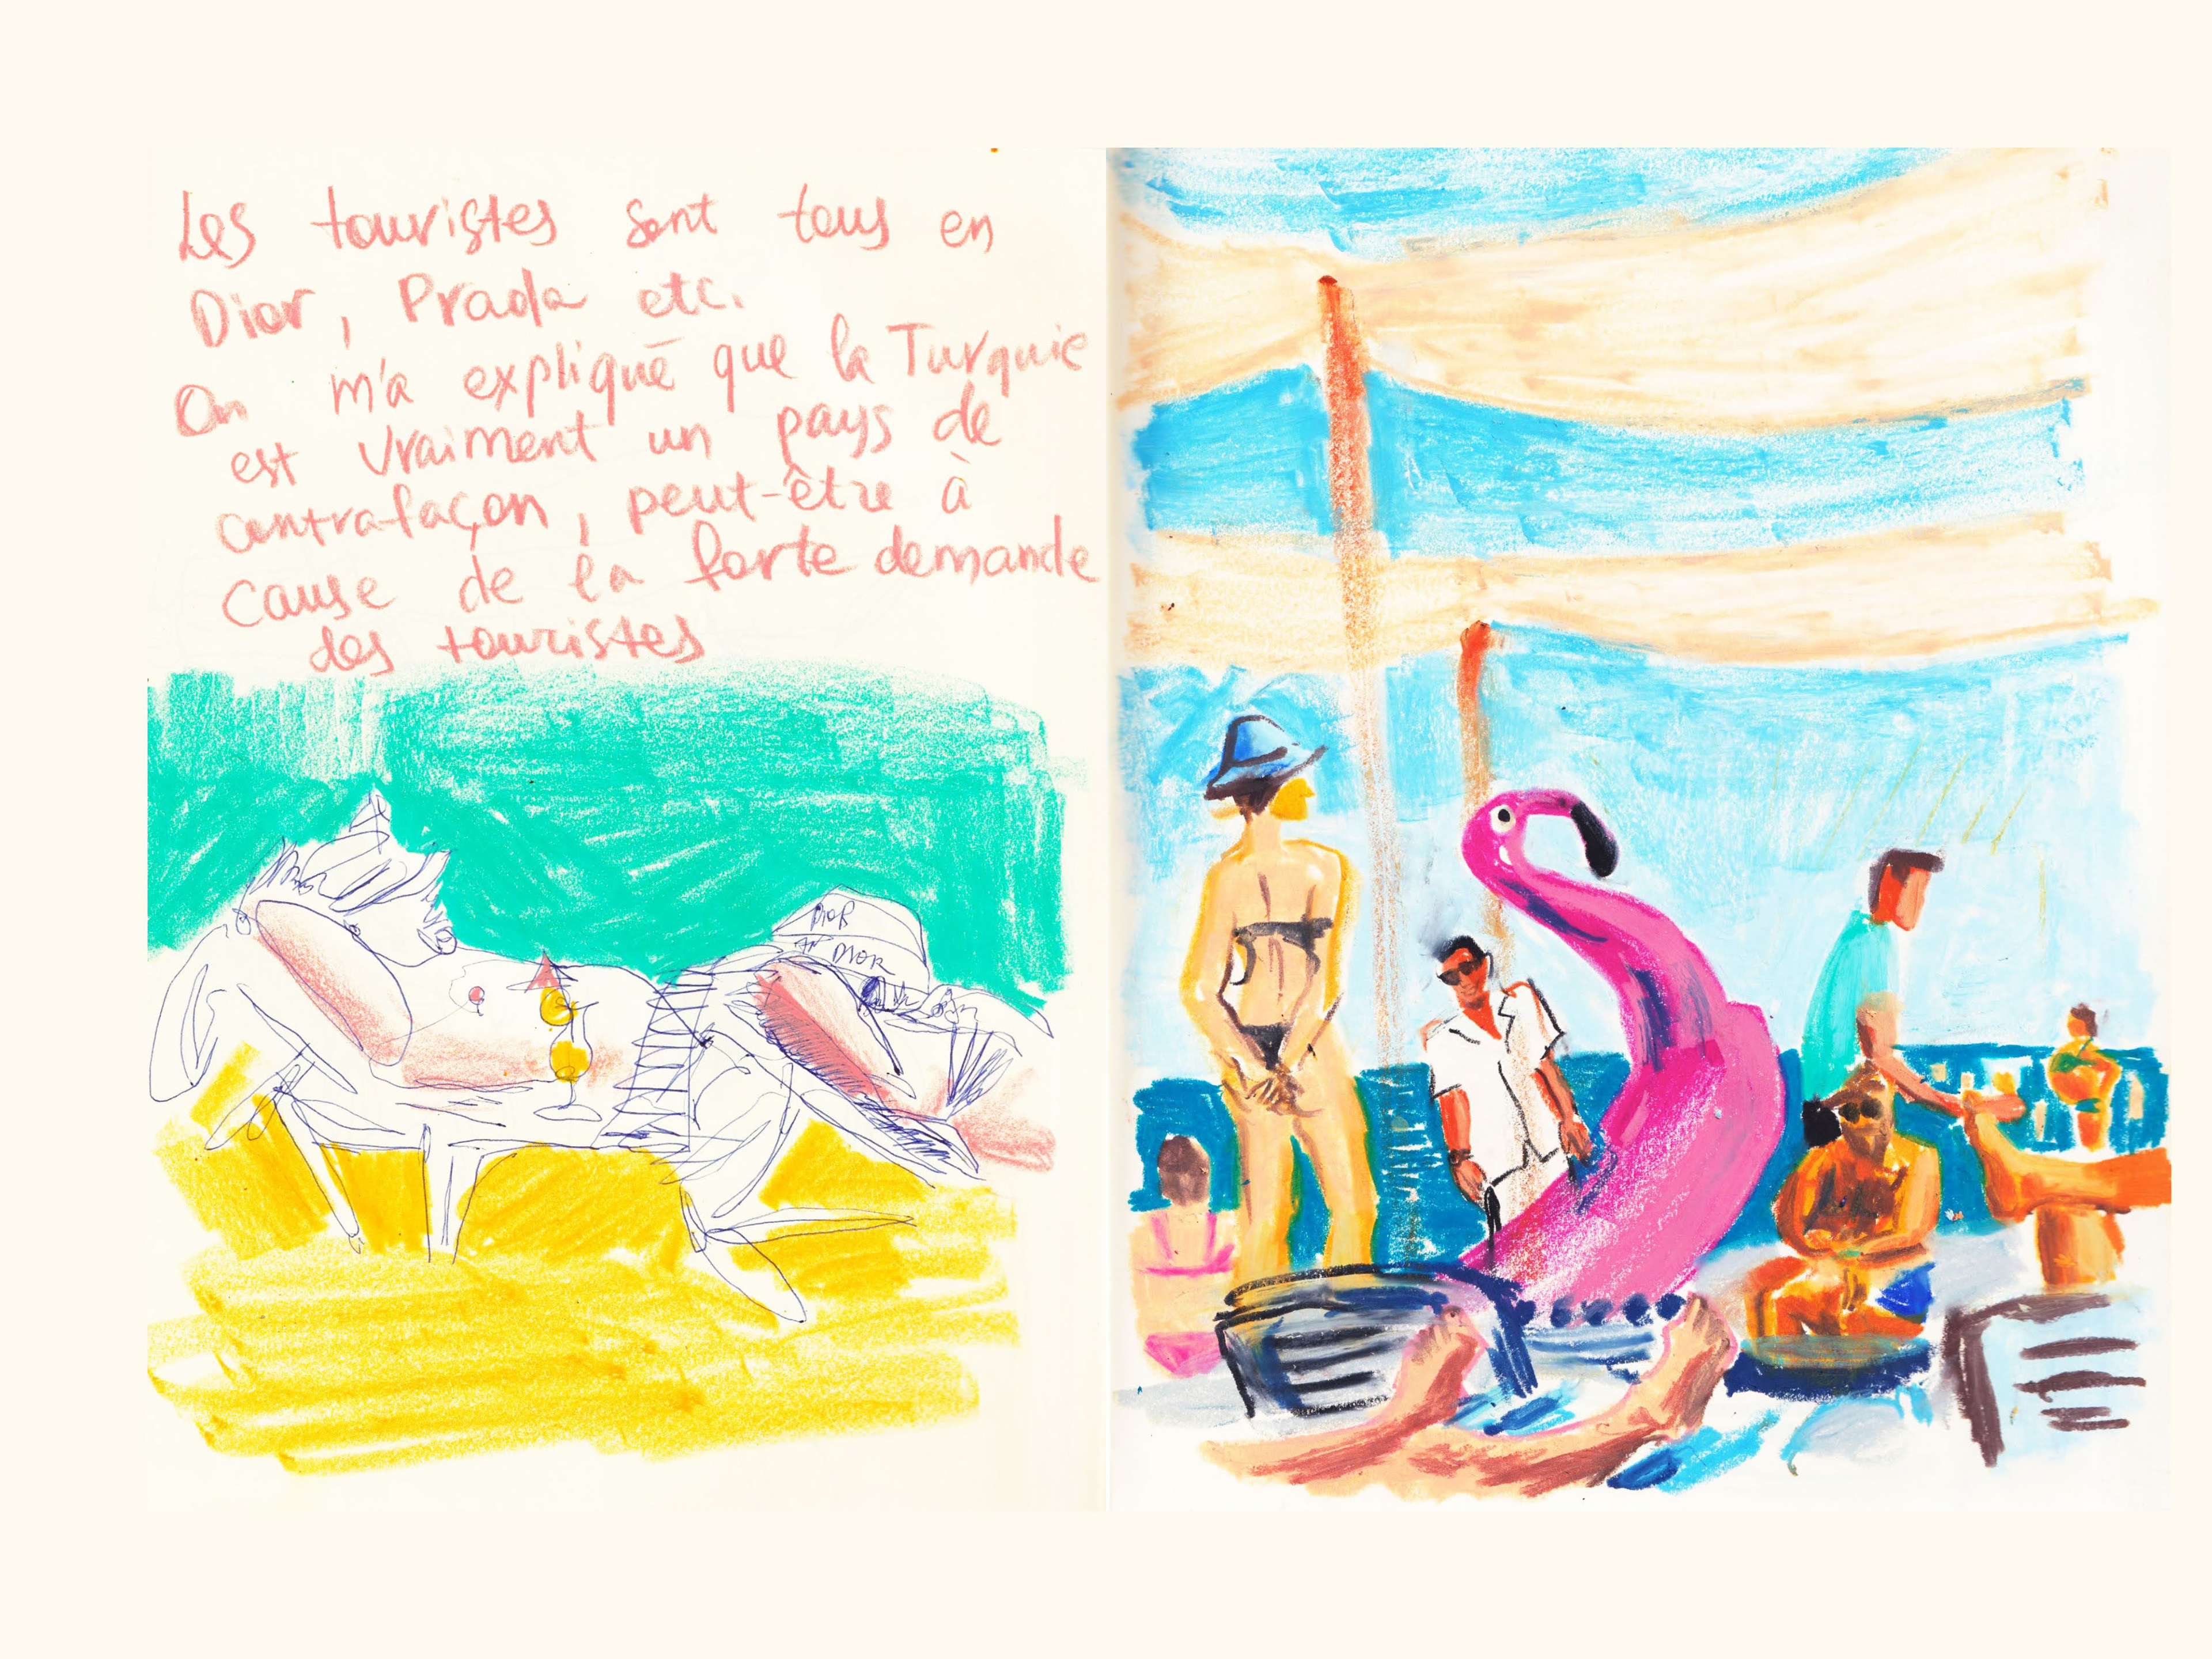 Les touristes sont tous en
Dior, Prada etc.
On m'a expliqué que la Turquie
est vraiment un pays de
contrafaçon, peut-être à
cause de la forte demande
des touristes
DIOR
DIOR